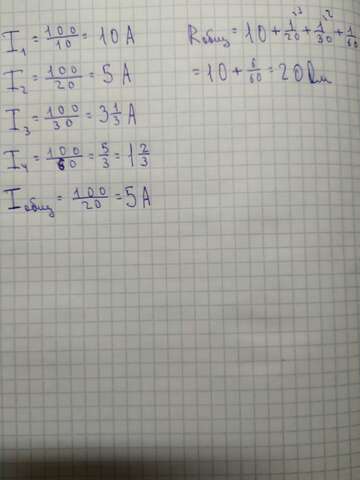 I₁ = 100/10 = 10 A
I₂ = 100/20 = 5 A
I₃ = 100/30 = 3 1/3 A
I₄ = 100/60 = 5/3 = 1 2/3
Iобщ = 100/20 = 5A
Rобщ = 10 + 1/20 + 1/30 + 1/60
= 10 + 6/60 = 20 Ом